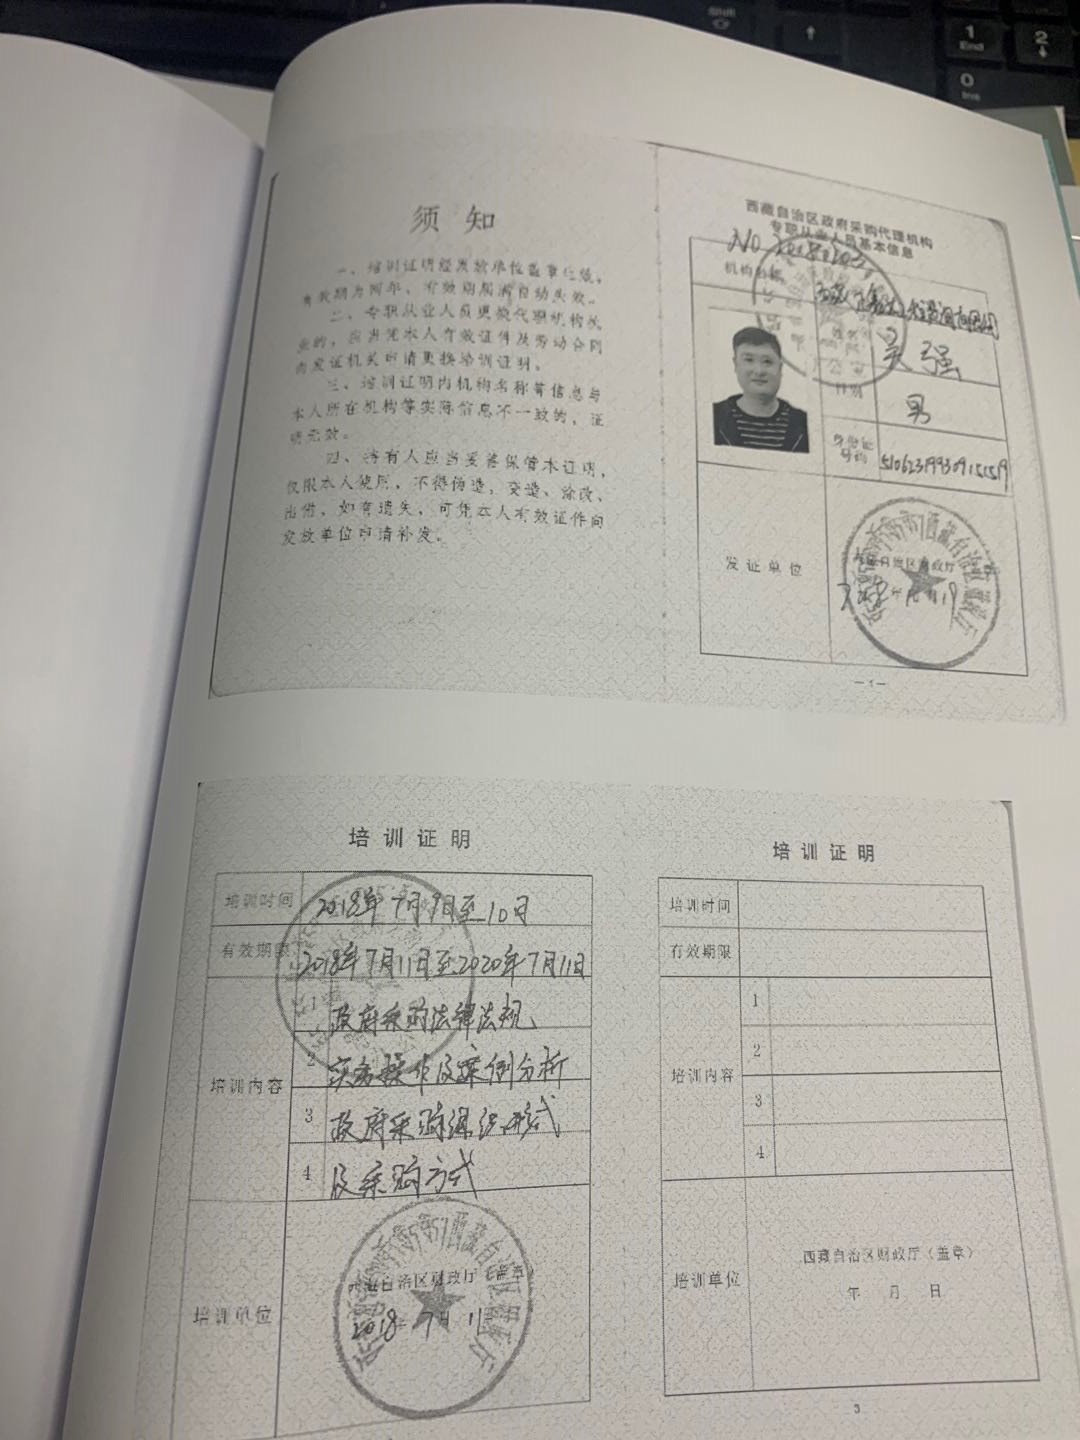 须知
一、培训证明经发放单位盖章生效,
有效期为两年,有效期届满自动失效。
二、专职从业人员更换代理机构执
业的,应当凭本人有效证件及劳动合同
向发证机关申请更换培训证明。
三、培训证明内机构名称等信息与
本人所在机构等实际信息不一致的,证
明无效。
四、持有人应当妥善保管本证明,
仅限本人使用,不得伪造、变造、涂改、
出借,如有遗失,可凭本人有效证件向
发放单位申请补发。
西藏自治区政府采购代理机构
专职从业人员基本信息
机构名称
吴强
性别
男
身份证
号码
510623199309151519
发证单位
西藏自治区财政厅
—1—
培训证明
培训时间
2018年7月9日至10日
有效期限
2018年7月11日至2020年7月11日
培训内容
1
政府采购法律法规
2
实务操作及案例分析
3
政府采购组织形式
4
及采购方式
培训单位
西藏自治区财政厅(盖章)
2018年7月11
培训证明
培训时间
有效期限
培训内容
1
2
3
4
培训单位
西藏自治区财政厅(盖章)
年 月 日
3
1
End
2
0
Ins